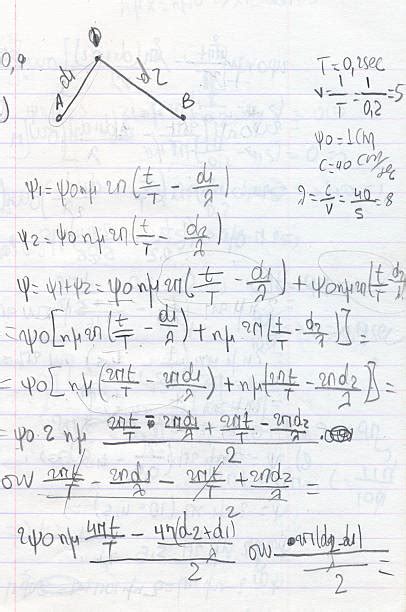 0,9
d1 d2
A B
T=0,2sec
ν=1/T=1/0,2=5
ψ0=1CM
C=40 CM/sec
λ=C/ν=40/5=8
ψ1=ψ0ημ2π(t/T-d1/λ)
ψ2=ψ0ημ2π(t/T-d2/λ)
ψ=ψ1+ψ2=ψ0ημ2π(t/T-d1/λ)+ψ0ημ2π(t/T-d2/λ
=ψ0[ημ2π(t/T-d1/λ)+ημ2π(t/T-d2/λ)]=
=ψ0[ημ(2πt/T-2πd1/λ)+ημ(2πt/T-2πd2/λ)]=
=ψ0·2ημ (2πt/T-2πd1/λ+2πt/T-2πd2/λ)/2 ·
συν (2πt/T-2πd1/λ-2πt/T+2πd2/λ)/2 =
2ψ0ημ (4πt/T-4π(d2+d1)/λ)/2 συν (2π(d2-d1)/λ)/2 =